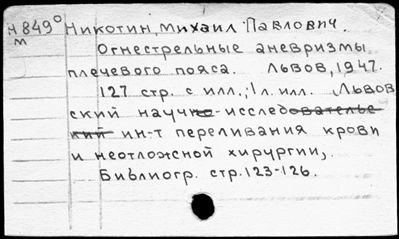 Н 849° Никотин, Михаил Павлович.
м Огнестрельные аневризмы
плечевого пояса. Львов, 1947.
127 стр. с илл.; 1 л. илл. Львов
ский научно-исследовательс
кий ин-т переливания крови
и неотложной хирургии,.
Библиогр. стр. 123-126.